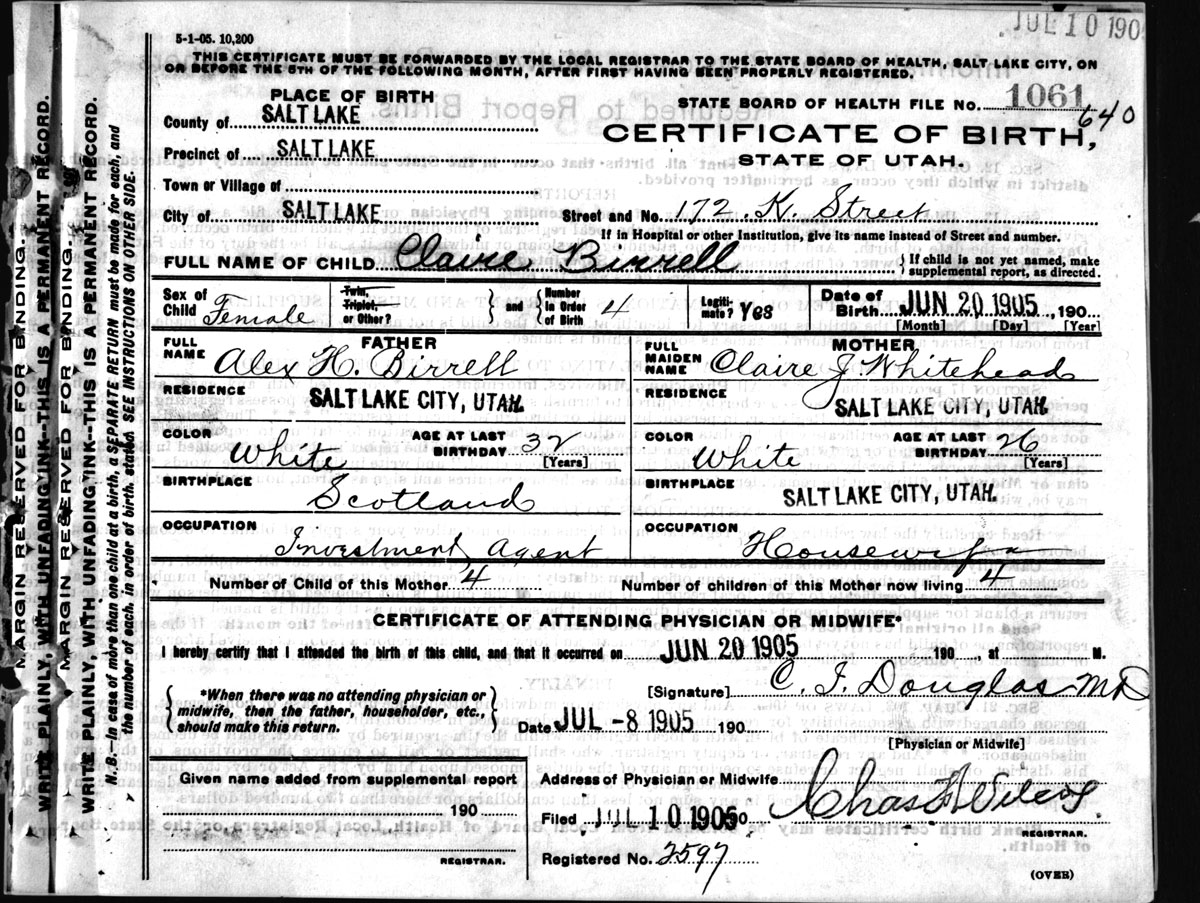 JUL 10 190
5-1-05. 10,200
THIS CERTIFICATE MUST BE FORWARDED BY THE LOCAL REGISTRAR TO THE STATE BOARD OF HEALTH, SALT LAKE CITY, ON
OR BEFORE THE 5TH OF THE FOLLOWING MONTH, AFTER FIRST HAVING BEEN PROPERLY REGISTERED.
PLACE OF BIRTH
STATE BOARD OF HEALTH FILE NO. 1061
640
County of SALT LAKE
CERTIFICATE OF BIRTH,
Precinct of SALT LAKE
STATE OF UTAH.
Town or Village of
City of SALT LAKE Street and No. 172. K. Street
If in Hospital or other Institution, give its name instead of Street and number.
FULL NAME OF CHILD Claire Birrell { If child is not yet named, make
supplemental report, as directed.
Sex of Child Female
Twin, Triplet, or Other? } and { Number in Order of Birth 4
Legitimate? Yes
Date of Birth JUN 20 1905, 190
[Month] [Day] [Year]
FATHER
FULL NAME Alex H. Birrell
MOTHER
FULL MAIDEN NAME Claire J Whitehead
RESIDENCE SALT LAKE CITY, UTAH.
RESIDENCE SALT LAKE CITY, UTAH.
COLOR White AGE AT LAST BIRTHDAY 32 [Years]
COLOR White AGE AT LAST BIRTHDAY 26 [Years]
BIRTHPLACE Scotland
BIRTHPLACE SALT LAKE CITY, UTAH.
OCCUPATION Investment Agent
OCCUPATION Housewife
Number of Child of this Mother 4 Number of children of this Mother now living 4
CERTIFICATE OF ATTENDING PHYSICIAN OR MIDWIFE*
I hereby certify that I attended the birth of this child, and that it occurred on JUN 20 1905, 190 at M.
{ *When there was no attending physician or
midwife, then the father, householder, etc.,
should make this return. }
[Signature] C. F. Douglas MD
Date JUL -8 1905 190
[Physician or Midwife]
Given name added from supplemental report
190
REGISTRAR.
Address of Physician or Midwife
Filed JUL 10 1905 190 Chas F Wilcox.
REGISTRAR.
Registered No. 2597
(OVER)
MARGIN RESERVED FOR BINDING.
WRITE PLAINLY, WITH UNFADING INK--THIS IS A PERMANENT RECORD.
MARGIN RESERVED FOR BINDING.
WRITE PLAINLY, WITH UNFADING INK--THIS IS A PERMANENT RECORD.
N. B.--In case of more than one child at a birth, a SEPARATE RETURN must be made for each, and
the number of each, in order of birth, stated. SEE INSTRUCTIONS ON OTHER SIDE.